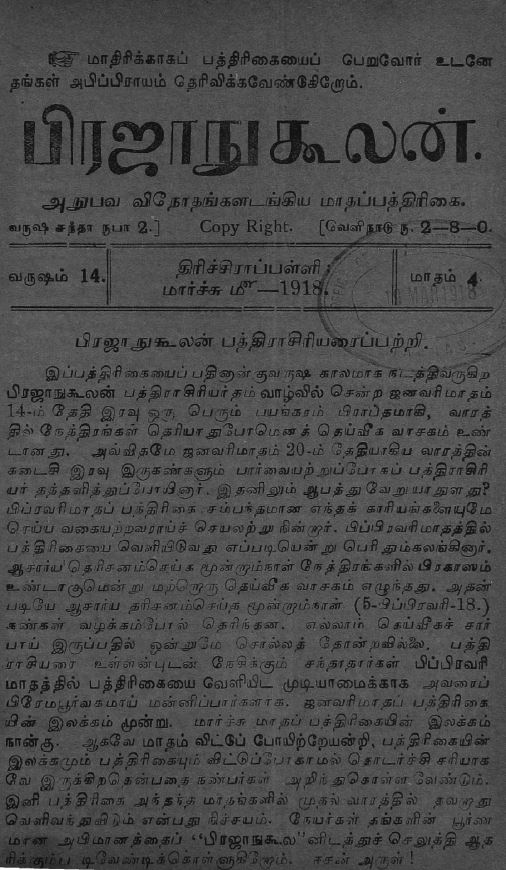 ☞ மாதிரிக்காகப் பத்திரிகையைப் பெறுவோர் உடனே
தங்கள் அபிப்பிராயம் தெரிவிக்கவேண்டுகிறோம்.
பிரஜாநுகூலன்.
அநுபவ விநோதங்களடங்கிய மாதப்பத்திரிகை.
வருஷ சந்தா ரூபா 2.] Copy Right. [வெளிநாடு ரூ. 2—8—0.
வருஷம் 14. திரிச்சிராப்பள்ளி : மாதம் 4.
மார்ச்சு மீ—1918.
பிரஜாநுகூலன் பத்திராசிரியரைப்பற்றி.
இப்பத்திரிகையைப் பதினான்குவருஷ காலமாக நடத்திவருகிற
பிரஜாநுகூலன் பத்திராசிரியர்தம் வாழ்வில் சென்ற ஜனவரிமாதம்
14-ம் தேதி இரவு ஒரு பெரும் பயங்கரம் பிராப்தமாகி, வாரத்
தில் நேத்திரங்கள் தெரியாதுபோமெனத் தெய்வீக வாசகம் உண்
டானது. அவ்விதமே ஜனவரிமாதம் 20-ம் தேதியாகிய வாரத்தின்
கடைசி இரவு இருகண்களும் பார்வையற்றுப்போகப் பத்திராசிரி
யர் தத்தளித்துப்போயினார். இதனினும் ஆபத்து வேறு யாதுளது?
பிப்ரவரிமாதப் பத்திரிகை சம்பந்தமான எந்தக் காரியங்களையுமே
செய்ய வகையற்றவராய்ச் செயலற்று நின்றார். பிப்பிரவரிமாதத்தில்
பத்திரிகையை வெளியிடுவது எப்படியென்று பெரிதும்கலங்கினார்.
ஆசார்ய தெரிசனம்செய்க மூன்றாம்நாள் நேத்திரங்களில் பிரகாஸம்
உண்டாகுமென்று மற்றொரு தெய்வீக வாசகம் எழுந்தது. அதன்
படியே ஆசார்ய தரிசனம்செய்த மூன்றாம்நாள் (5-பிப்பிரவரி-18.)
கண்கள் வழக்கம்போல் தெரிந்தன. எல்லாம் தெய்வீகச் சார்
பாய் இருப்பதில் ஒன்றுமே சொல்லத் தோன்றவில்லை. பத்தி
ராசியரை உள்ளன்புடன் நேசிக்கும் சந்தாதார்கள் பிப்பிரவரி
மாதத்தில் பத்திரிகையை வெளியிட முடியாமைக்காக அவரைப்
பிரேமபூர்வகமாய் மன்னிப்பார்களாக. ஜனவரிமாதப் பத்திரிகை
யின் இலக்கம் மூன்று. மார்ச்சு மாதப் பத்திரிகையின் இலக்கம்
நான்கு. ஆகவே மாதம் விட்டுப் போயிற்றேயன்றி, பத்திரிகையின்
இலக்கமும் பத்திரிகையும் விட்டுப்போகாமல் தொடர்ச்சி சரியாக
வே இருக்கிறதென்பதை நண்பர்கள் அறிந்துகொள்ள வேண்டும்.
இனி பத்திரிகை அந்தந்த மாதங்களில் முதல் வாரத்தில் தவறாது
வெளிவந்துவிடும் என்பது நிச்சயம். நேயர்கள் தங்களின் பூர்ண
மான அபிமானத்தைப் "பிரஜாநுகூல"னிடத்துச் செலுத்தி ஆத
ரிக்கும்படி வேண்டிக்கொள்ளுகிறோம். ஈசன் அருள் !